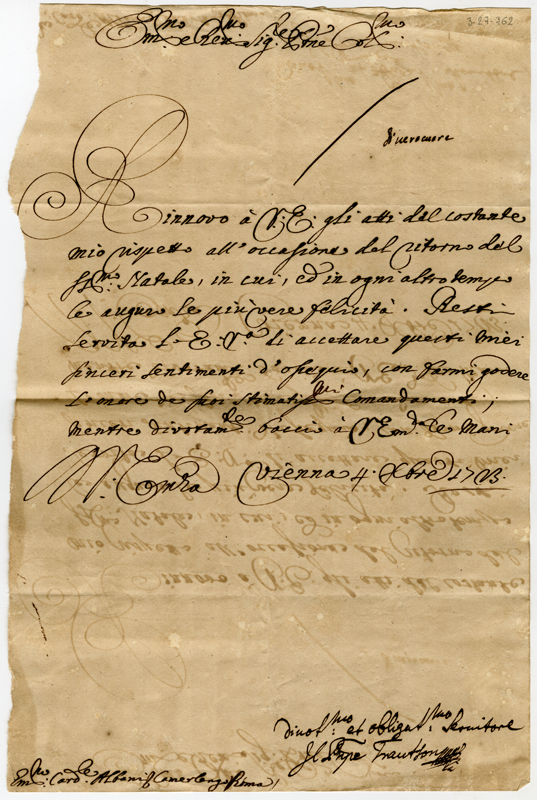 3-27-762
Em.mo e Rev.mo Sig.re P.rne Col.mo
di vero cuore
Rinnovo à V. E. gli atti del costante
mio rispetto all'occasione del ritorno del
SS.mo Natale, in cui, ed in ogni altro tempo
le auguro le più vere felicità. Resti
servita l'E. V.a di accettare questi miei
sinceri sentimenti d'ossequio, con farmi godere
l'onore de suoi stimatis.mi Comandamenti;
mentre divotam.te baccio à V. Em.a le Mani
Vienna 4. Xbre
Divot.mo et obligat.mo Servitore
Il Trautson
Em.mo Card.le Albani Camerlengo Roma